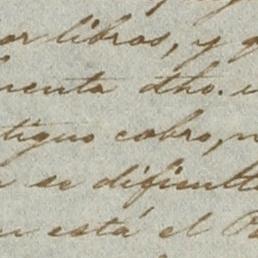 or libros, y
menta dho.
tiguo cobro,
se dificult
está el